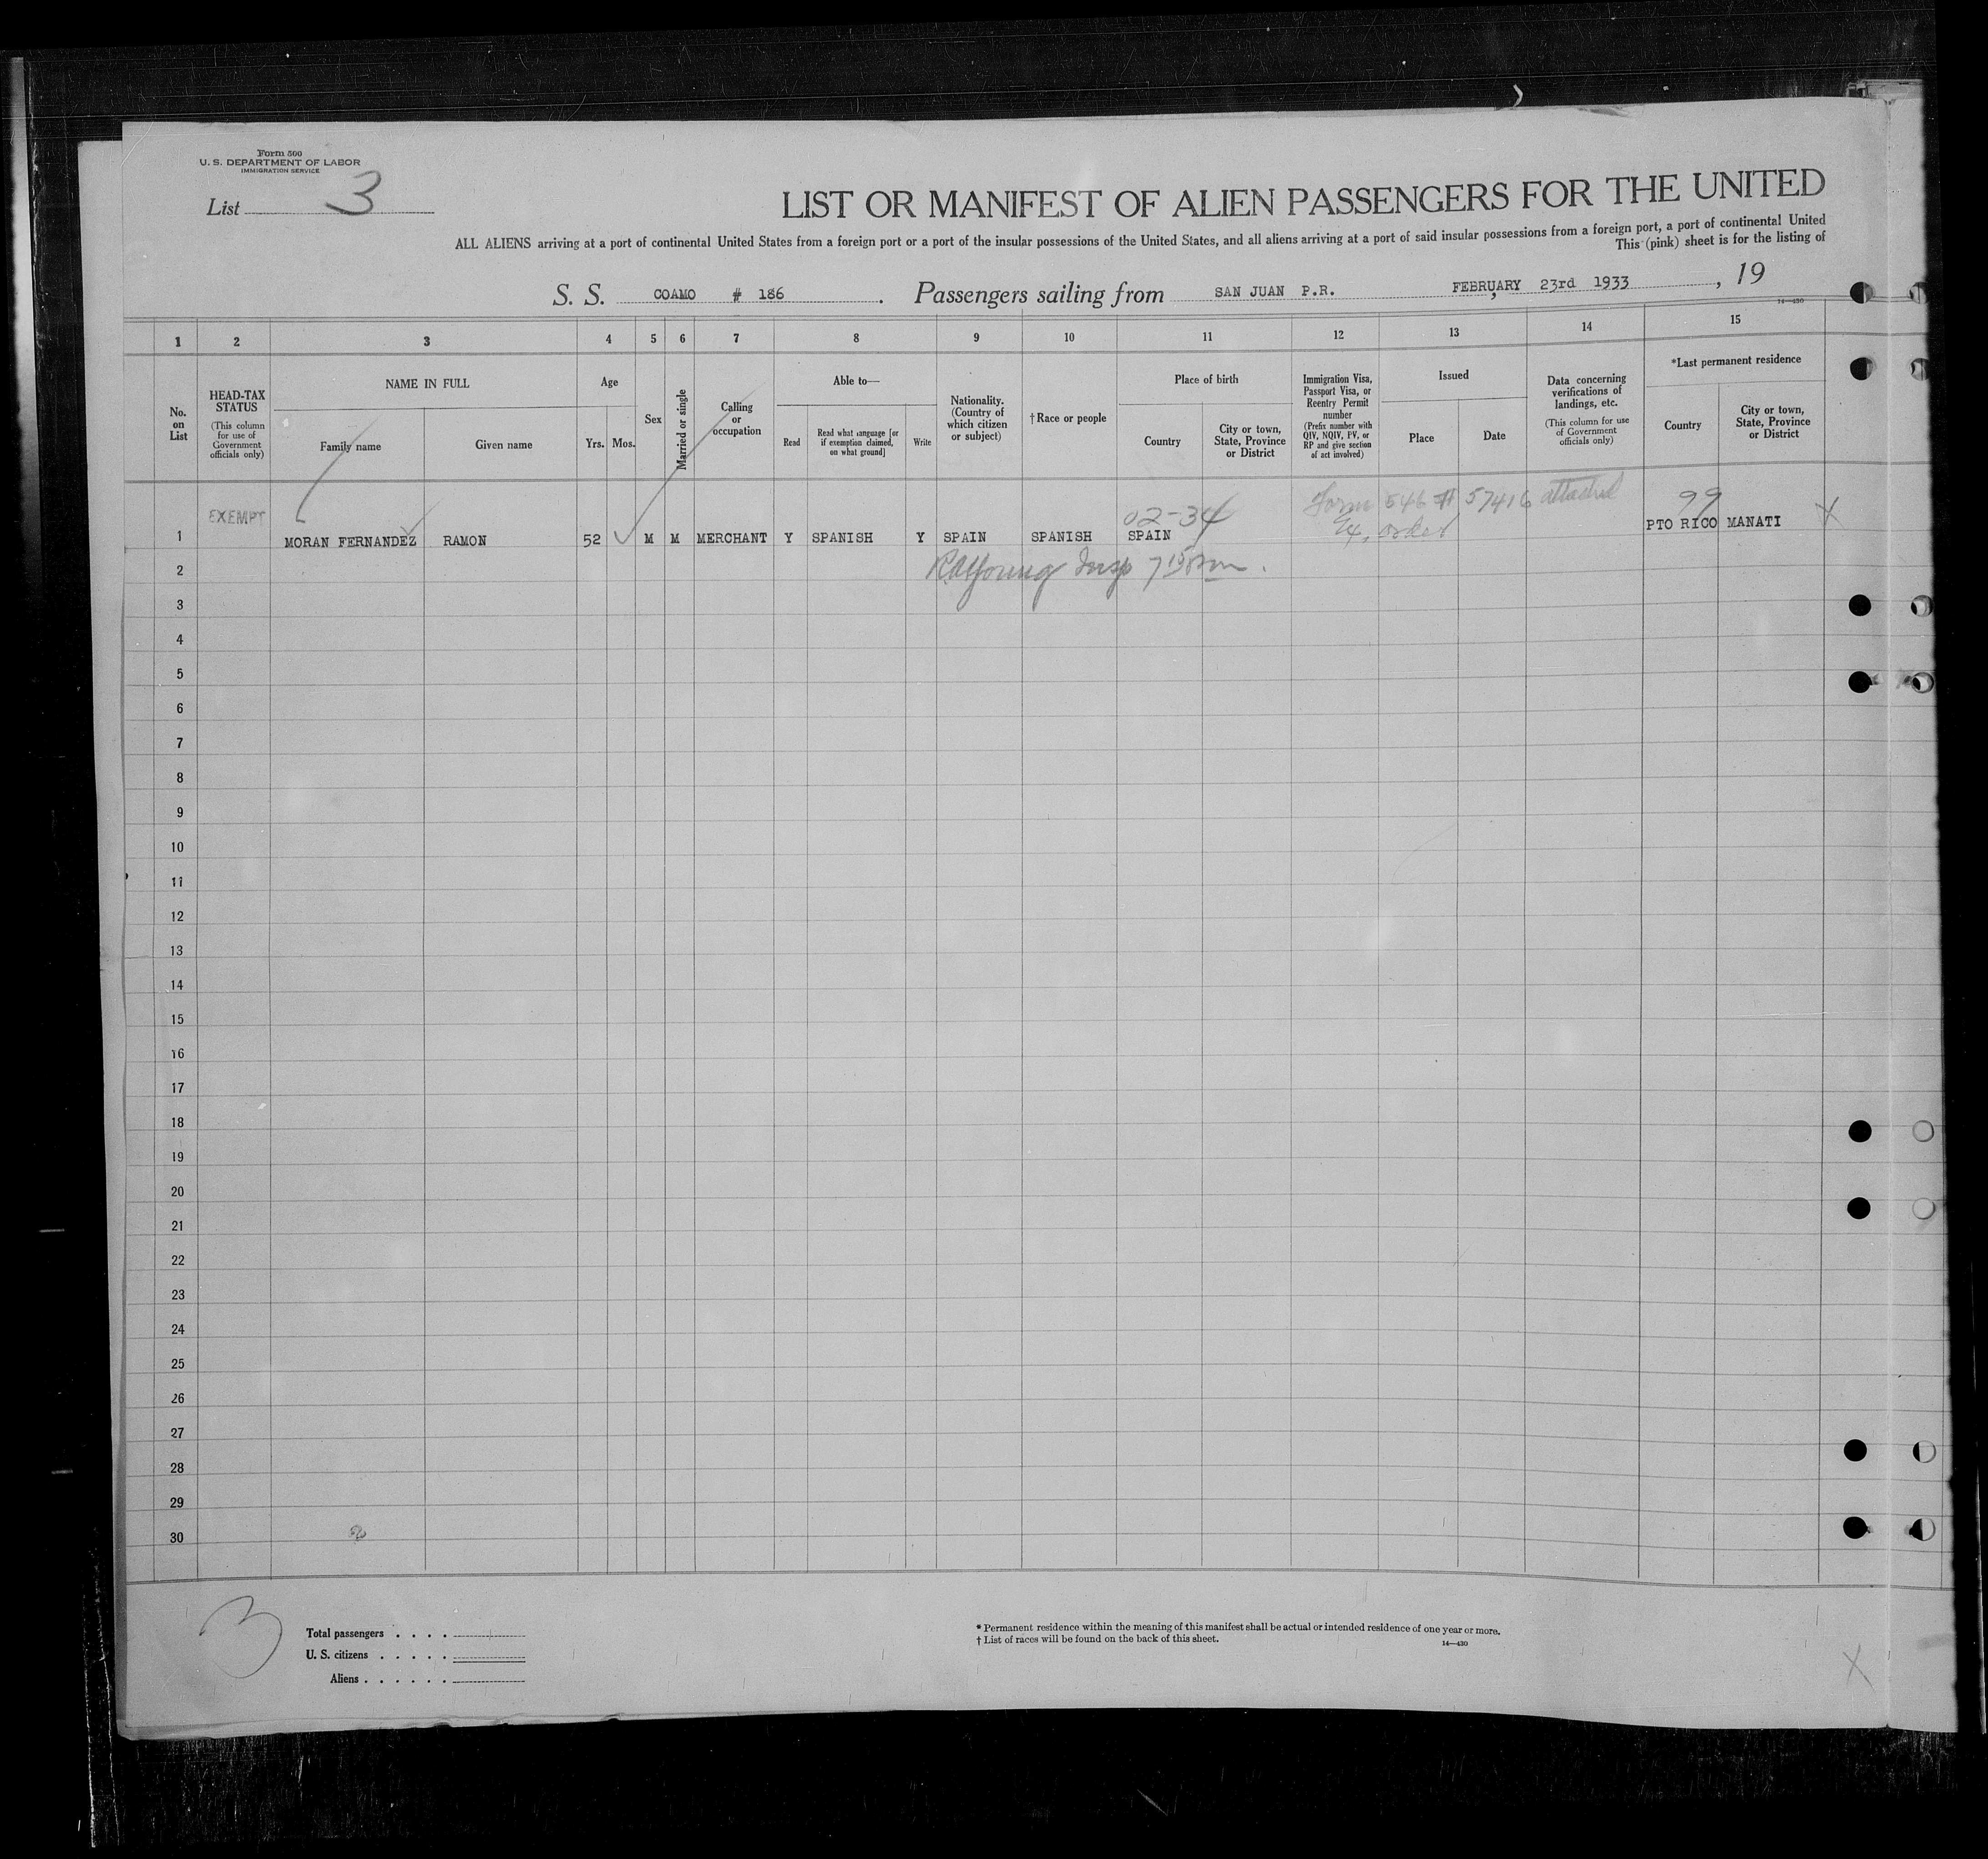 Form 500
U. S. DEPARTMENT OF LABOR
IMMIGRATION SERVICE
List 3
LIST OR MANIFEST OF ALIEN PASSENGERS FOR THE UNITED
ALL ALIENS arriving at a port of continental United States from a foreign port or a port of the insular possessions of the United States, and all aliens arriving at a port of said insular possessions from a foreign port, a port of continental United
This (pink) sheet is for the listing of
S. S. COAMO # 186 . Passengers sailing from SAN JUAN P.R. FEBRUARY 23rd 1933 , 19
14—430
1 2 3 4 5 6 7 8 9 10 11 12 13 14 15
No. on List
HEAD-TAX STATUS
(This column for use of Government officials only)
NAME IN FULL
Family name
Given name
Age
Yrs. Mos.
Sex
Married or single
Calling or occupation
Able to—
Read
Read what language [or if exemption claimed, on what ground]
Write
Nationality. (Country of which citizen or subject)
†Race or people
Place of birth
Country
City or town, State, Province or District
Immigration Visa, Passport Visa, or Reentry Permit number
(Prefix number with QIV, NQIV, PV, or RP and give section of act involved)
Issued
Place
Date
Data concerning verifications of landings, etc.
(This column for use of Government officials only)
*Last permanent residence
Country
City or town, State, Province or District
EXEMPT 02-34 Form 546 # 57416 attached 99
Ex. order
1 MORAN FERNANDEZ RAMON 52 M M MERCHANT Y SPANISH Y SPAIN SPANISH SPAIN PTO RICO MANATI X
2 Young Insp
3
4
5
6
7
8
9
10
11
12
13
14
15
16
17
18
19
20
21
22
23
24
25
26
27
28
29
30
3
Total passengers . . . .
U. S. citizens . . . . .
Aliens . . . . . .
* Permanent residence within the meaning of this manifest shall be actual or intended residence of one year or more.
† List of races will be found on the back of this sheet.
14—430
X